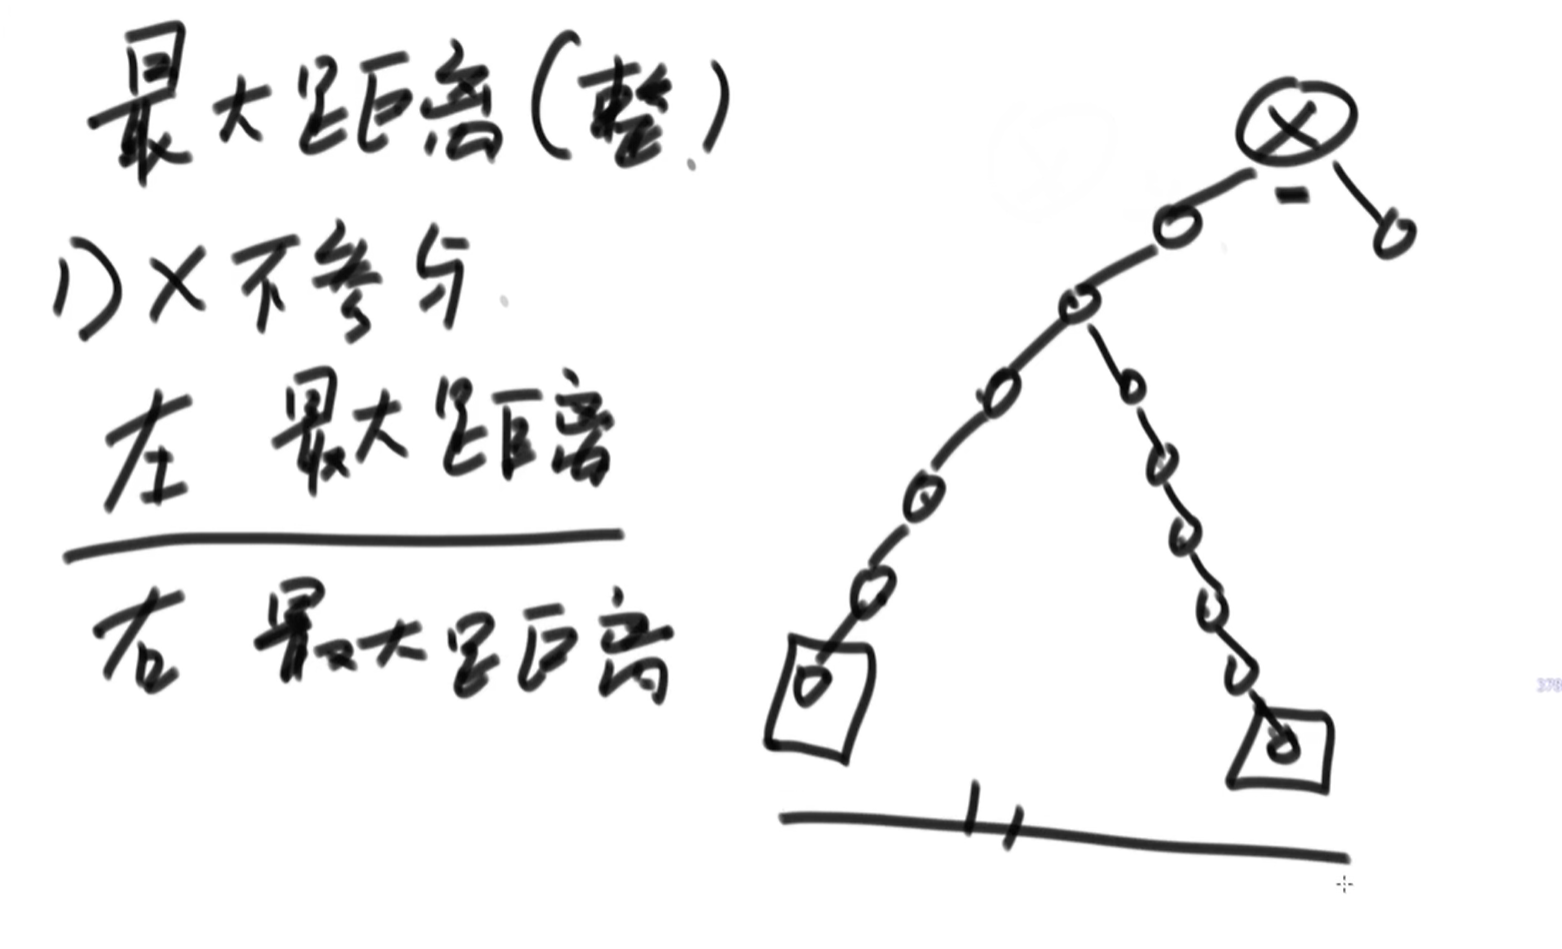 最大距离(整)
1) X不参与
左 最大距离
右 最大距离
X
11
378